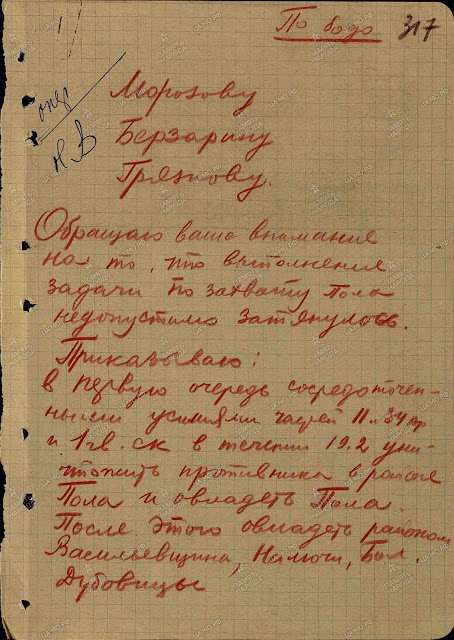 По бодо 317
опер
Н.В
Морозову
Берзарину
Грязнову.
Обращаю ваше внимание
на то, что выполнение
задачи по захвату Пола
недопустимо затянулось.
Приказываю:
В первую очередь сосредоточен-
ными усилиями частей 11 и 34 ар
и 1 гв. ск в течении 19.2 уни-
чтожить противника в районе
Пола и овладеть Пола.
После этого овладеть районом
Васильевщина, Налючи, Бол.
Дубовицы